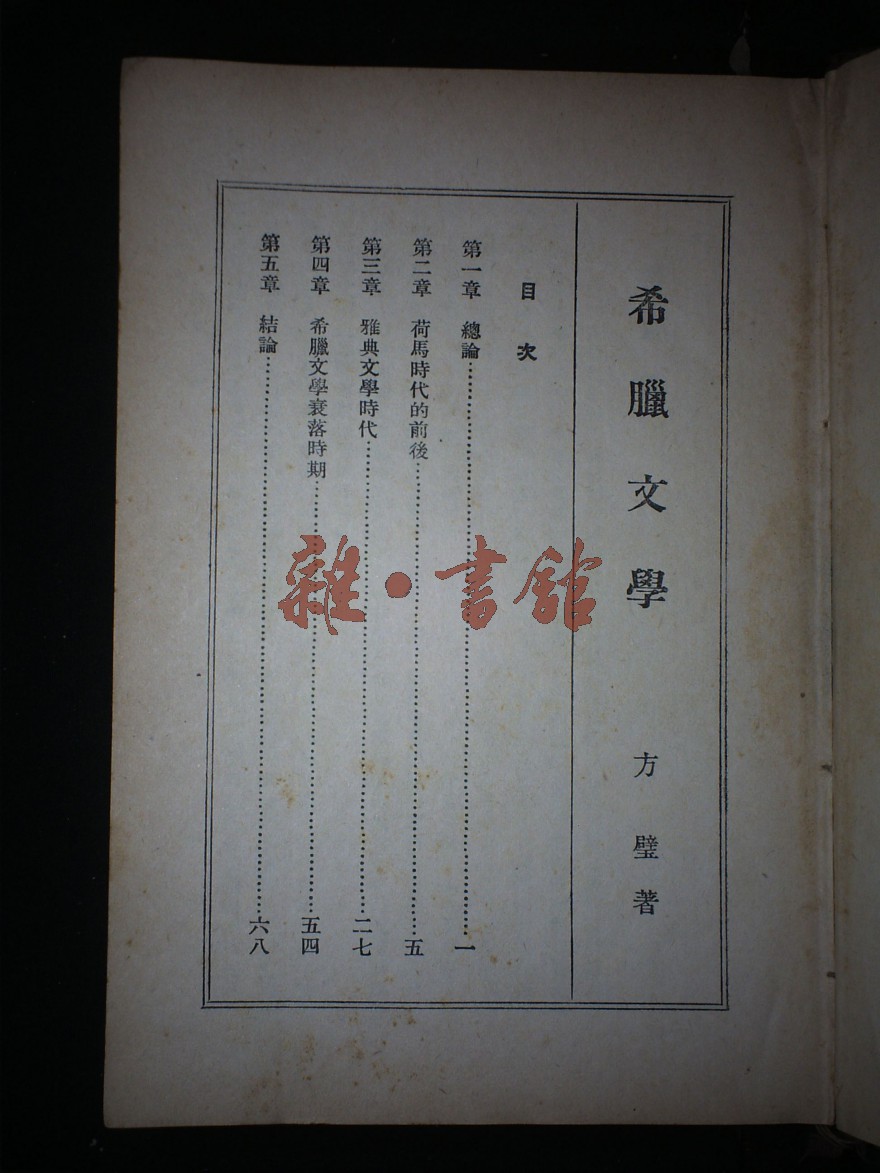 希臘文學
方璧著
目次
第一章 總論……一
第二章 荷馬時代的前後……五
第三章 雅典文學時代……二七
第四章 希臘文學衰落時期……五四
第五章 結論……六八
雜·書館